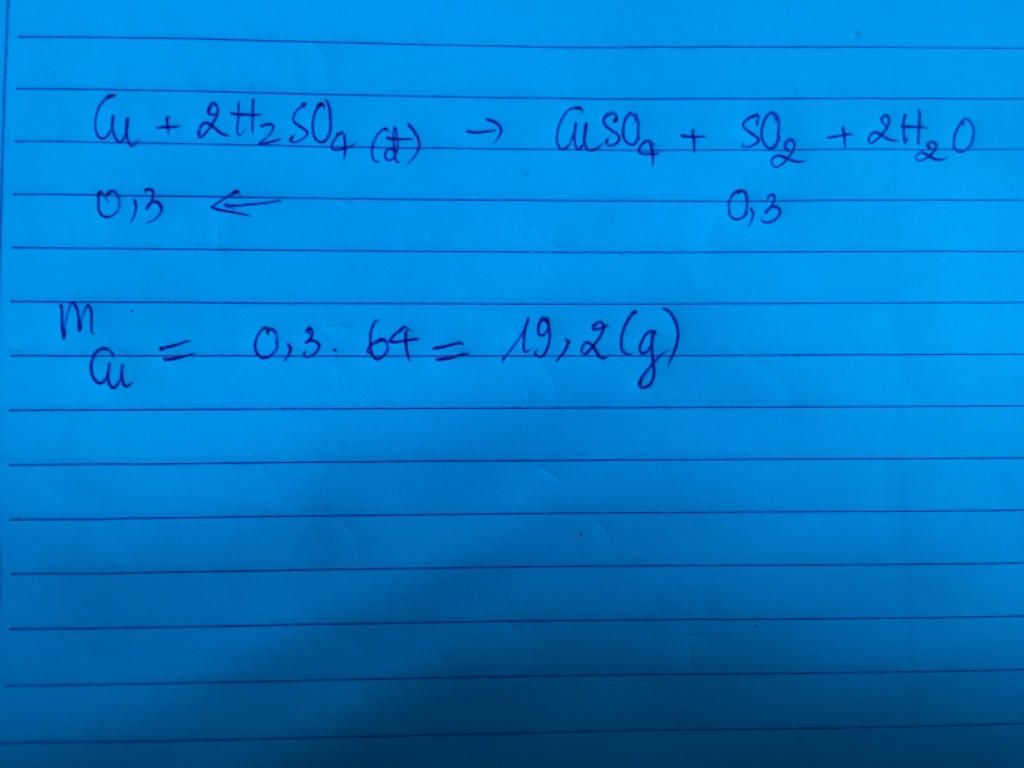 Cu + 2H₂SO₄ (đ) → CuSO₄ + SO₂ + 2H₂O
0,3 ← 0,3
m Cu = 0,3 . 64 = 19,2 (g)